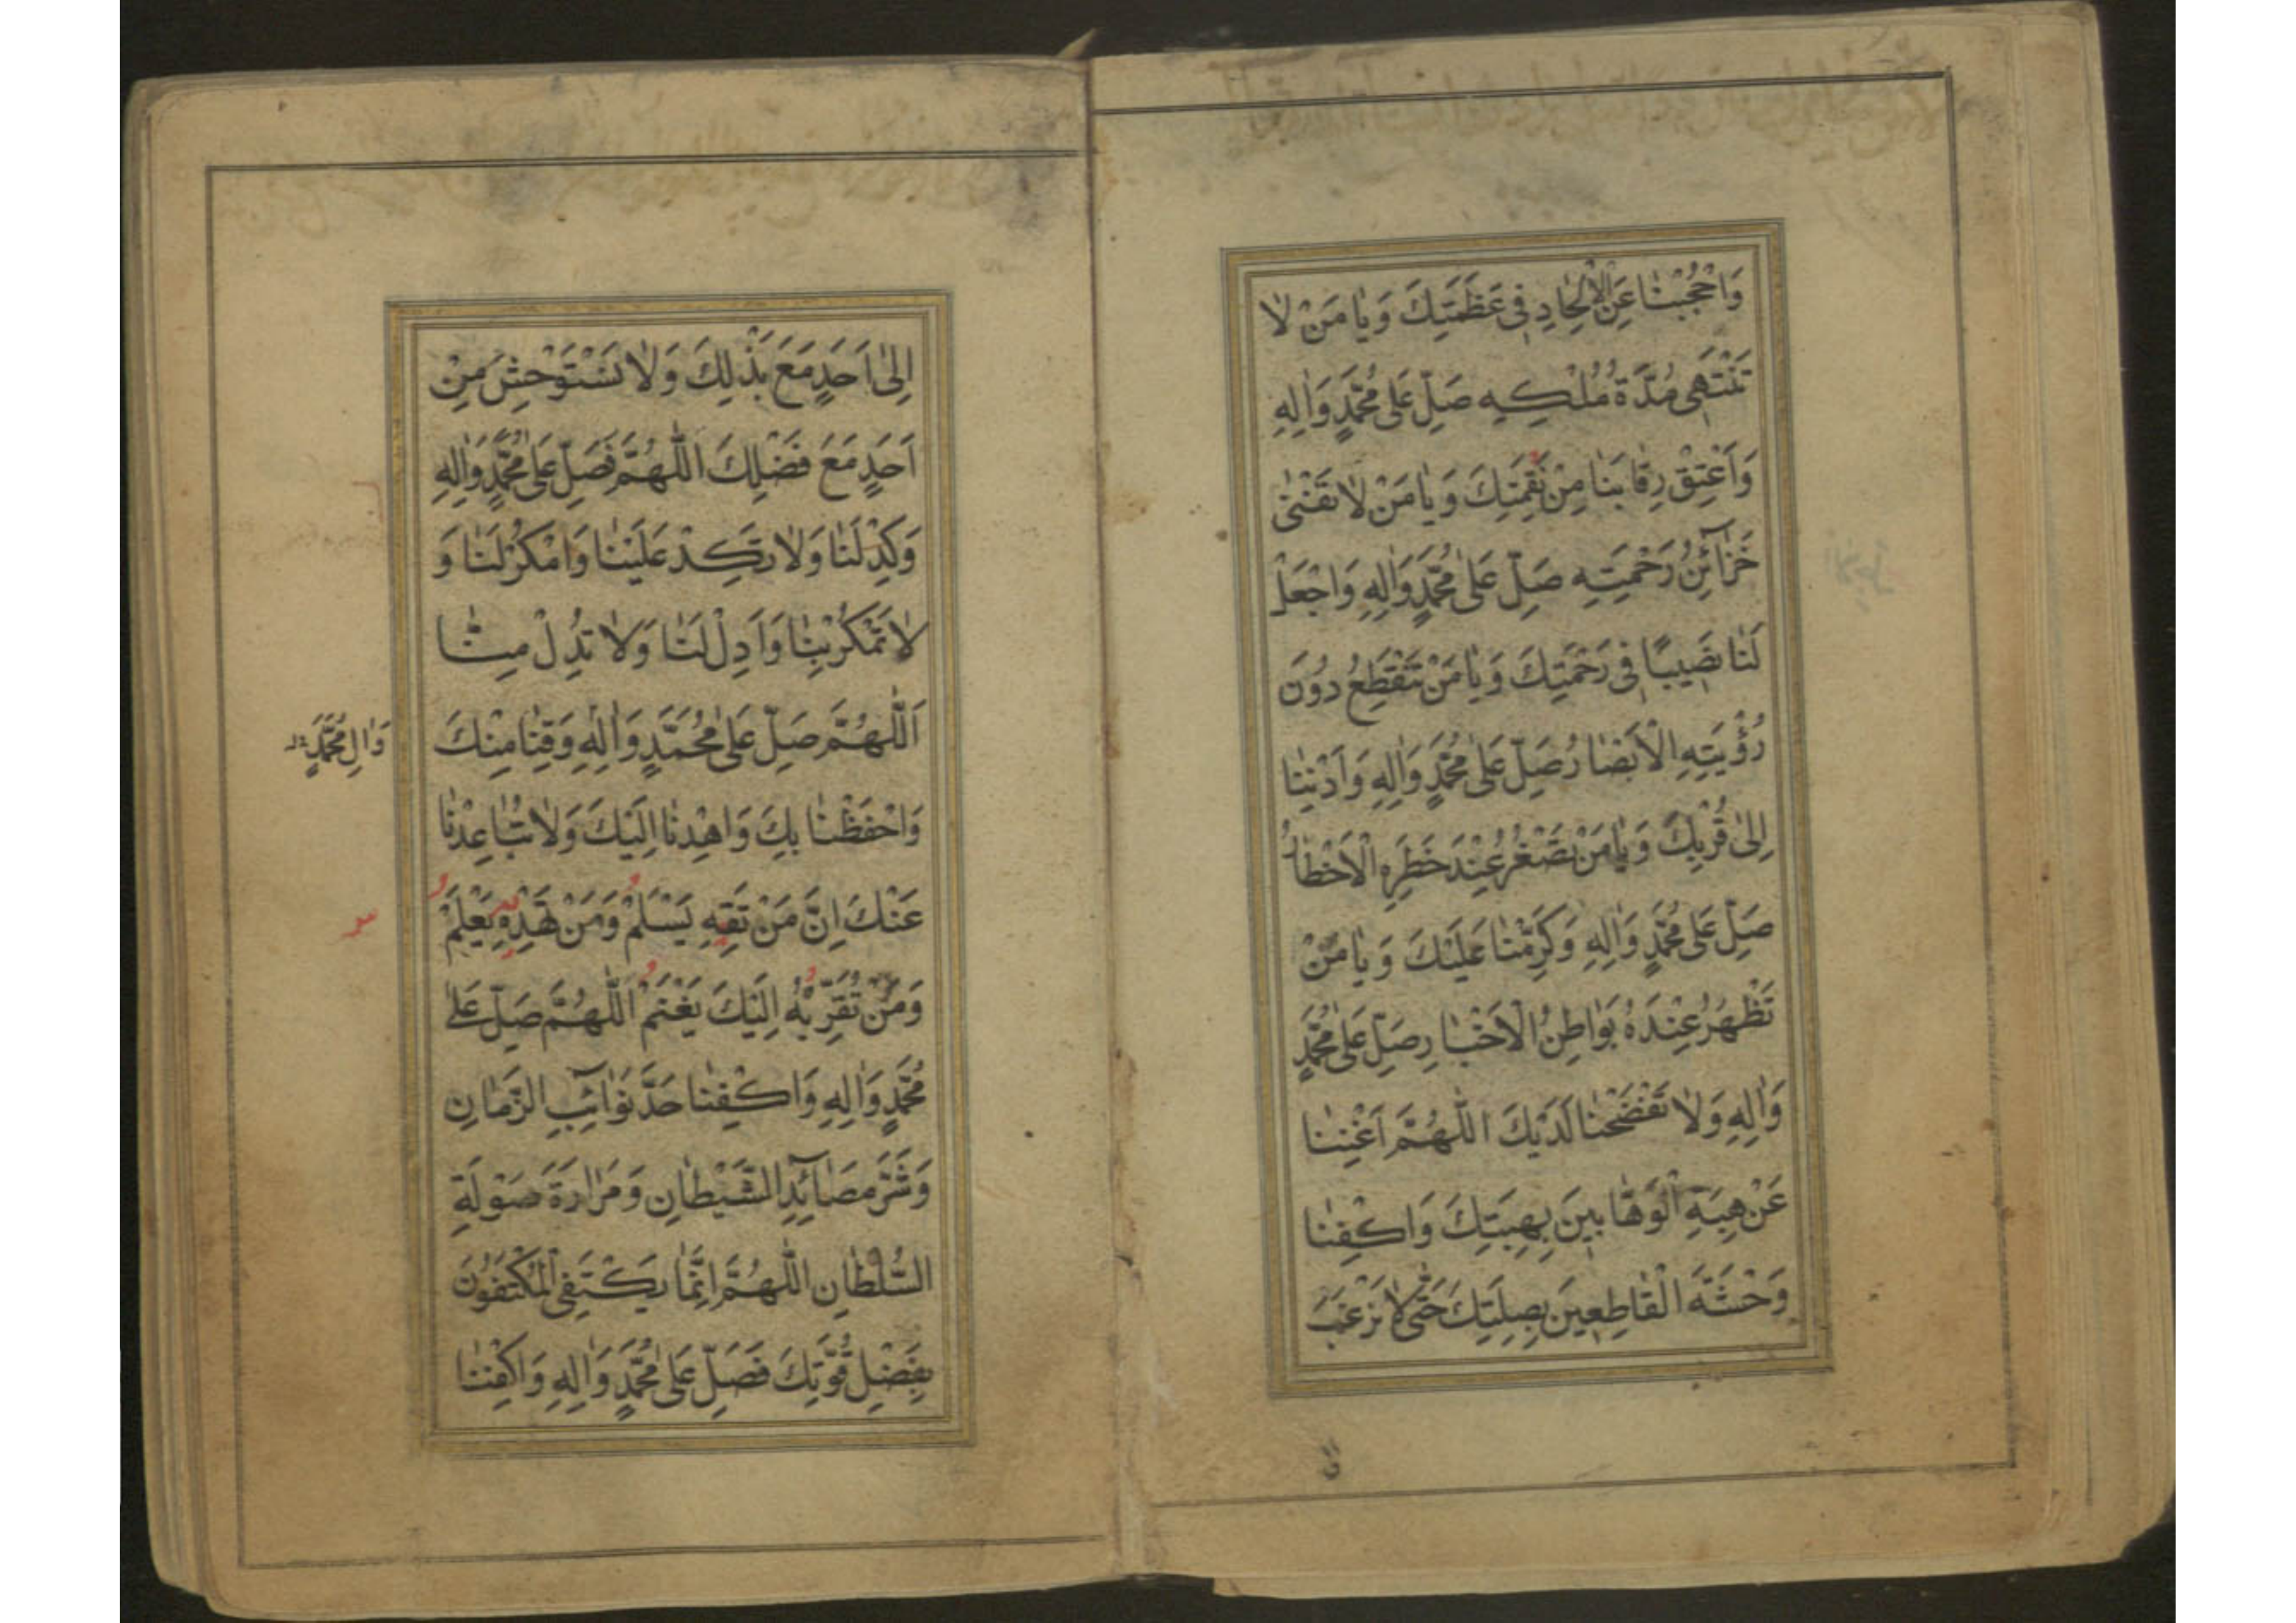 وَاحْجُبْنَا عَنِ الْاِلْحَادِ فِى عَظَمَتِكَ وَيَا مَنْ لَا
تَنْتَهِى مُدَّةُ مُلْكِهِ صَلِّ عَلٰى مُحَمَّدٍ وَاٰلِهِ
وَاَعْتِقْ رِقَابَنَا مِنْ نَقِمَتِكَ وَيَا مَنْ لَا تَفْنٰى
خَزَآئِنُ رَحْمَتِهِ صَلِّ عَلٰى مُحَمَّدٍ وَاٰلِهِ وَاجْعَلْ
لَنَا نَصِيبًا فِى رَحْمَتِكَ وَيَا مَنْ تَنْقَطِعُ دُونَ
رُؤْيَتِهِ الْاَبْصَارُ صَلِّ عَلٰى مُحَمَّدٍ وَاٰلِهِ وَاَدْنِنَا
اِلٰى قُرْبِكَ وَيَا مَنْ تَصْغُرُ عِنْدَ خَطَرِهِ الْاَخْطَارُ
صَلِّ عَلٰى مُحَمَّدٍ وَاٰلِهِ وَكَرِّمْنَا عَلَيْكَ وَيَا مَنْ
تَظْهَرُ عِنْدَهُ بَوَاطِنُ الْاَخْبَارِ صَلِّ عَلٰى مُحَمَّدٍ
وَاٰلِهِ وَلَا تَفْضَحْنَا لَدَيْكَ اَللّٰهُمَّ اَغْنِنَا
عَنْ هِبَةِ الْوَهَّابِينَ بِهِبَتِكَ وَاكْفِنَا
وَحْشَةَ الْقَاطِعِينَ بِصِلَتِكَ حَتّٰى لَا نَرْغَبَ
اِلٰى اَحَدٍ مَعَ بَذْلِكَ وَلَا نَسْتَوْحِشَ مِنْ
اَحَدٍ مَعَ فَضْلِكَ اَللّٰهُمَّ فَصَلِّ عَلٰى مُحَمَّدٍ وَاٰلِهِ
وَكِدْ لَنَا وَلَا تَكِدْ عَلَيْنَا وَامْكُرْ لَنَا وَ
لَا تَمْكُرْ بِنَا وَاَدِلْ لَنَا وَلَا تُدِلْ مِنَّا
اَللّٰهُمَّ صَلِّ عَلٰى مُحَمَّدٍ وَاٰلِهِ وَقِنَا مِنْكَ
وَاٰلِ مُحَمَّدٍ
وَاحْفَظْنَا بِكَ وَاهْدِنَا اِلَيْكَ وَلَا تُبَاعِدْنَا
عَنْكَ اِنَّ مَنْ تَقِهِ يَسْلَمْ وَمَنْ تَهْدِهِ يَعْلَمْ
وَمَنْ تُقَرِّبْهُ اِلَيْكَ يَغْنَمْ اَللّٰهُمَّ صَلِّ عَلٰى
مُحَمَّدٍ وَاٰلِهِ وَاكْفِنَا حَدَّ نَوَآئِبِ الزَّمَانِ
وَشَرَّ مَصَآئِدِ الشَّيْطَانِ وَمَرَارَةَ صَوْلَةِ
السُّلْطَانِ اَللّٰهُمَّ اِنَّمَا يَكْتَفِى الْمُكْتَفُونَ
بِفَضْلِ قُوَّتِكَ فَصَلِّ عَلٰى مُحَمَّدٍ وَاٰلِهِ وَاكْفِنَا